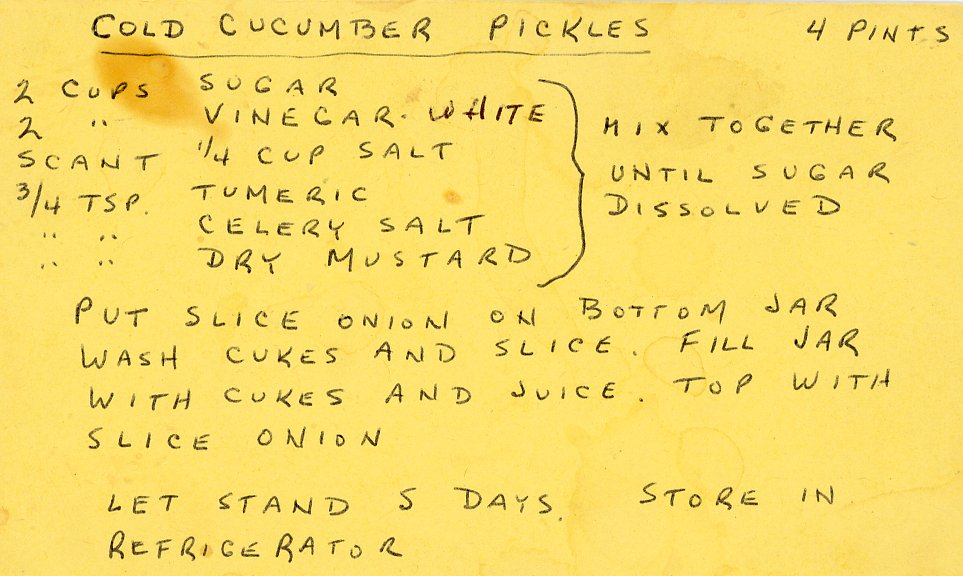 COLD CUCUMBER PICKLES 4 PINTS
2 CUPS SUGAR
2 " VINEGAR. WHITE
SCANT 1/4 CUP SALT
3/4 TSP. TUMERIC
" " CELERY SALT
" " DRY MUSTARD
MIX TOGETHER
UNTIL SUGAR
DISSOLVED
PUT SLICE ONION ON BOTTOM JAR
WASH CUKES AND SLICE. FILL JAR
WITH CUKES AND JUICE. TOP WITH
SLICE ONION
LET STAND 5 DAYS. STORE IN
REFRIGERATOR